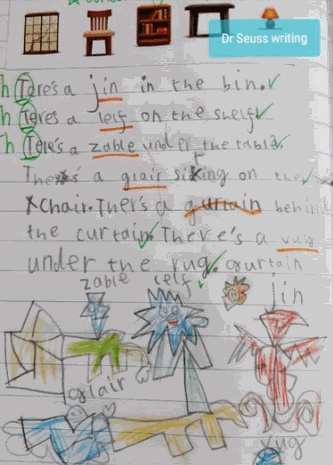 Dr Seuss writing
h Teres a jin in the bin.
h Teres a lelf on the shelf
h Teres a zable under the table.
Theres a glair sitting on the
Chair. Ther's a gurtain behind
the curtain. There's a vug
under the rug. gurtain
zable lelf jin
glair
vug